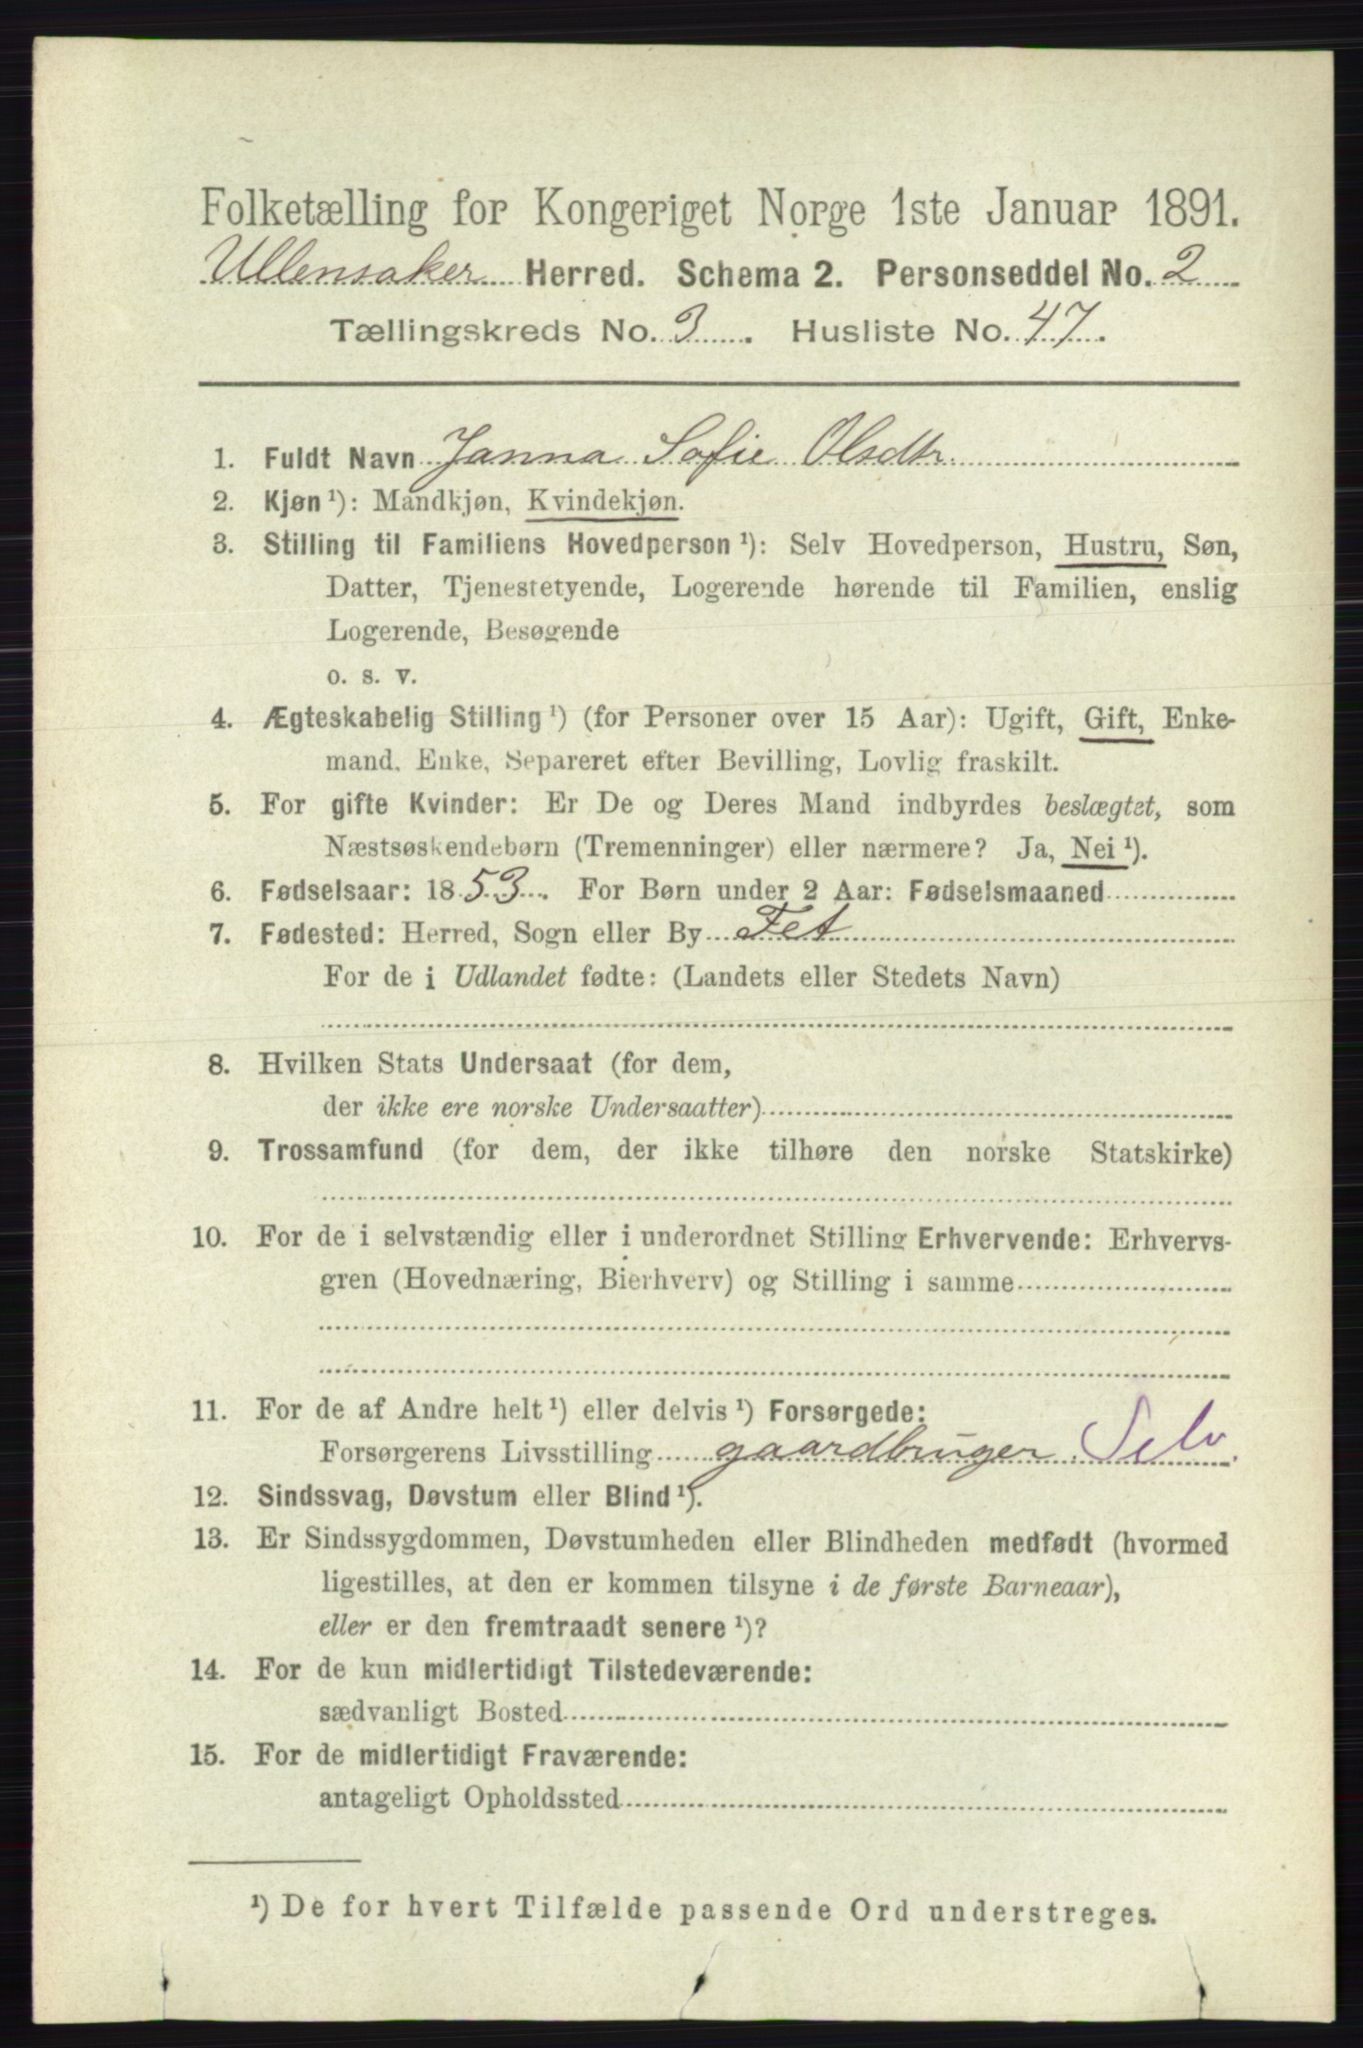 Folketælling for Kongeriget Norge 1ste Januar 1891.
Ullensaker Herred. Schema 2. Personseddel No. 2
Tællingskreds No. 3. Husliste No. 47.
1. Fuldt Navn Janna Sofie Olsdtr.
2. Kjøn ¹): Mandkjøn, Kvindekjøn.
3. Stilling til Familiens Hovedperson ¹): Selv Hovedperson, Hustru, Søn,
Datter, Tjenestetyende, Logerende hørende til Familien, enslig
Logerende, Besøgende
o. s. v.
4. Ægteskabelig Stilling ¹) (for Personer over 15 Aar): Ugift, Gift, Enke-
mand, Enke, Separeret efter Bevilling, Lovlig fraskilt.
5. For gifte Kvinder: Er De og Deres Mand indbyrdes beslægtet, som
Næstsøskendebørn (Tremenninger) eller nærmere? Ja, Nei ¹).
6. Fødselsaar: 1853. For Børn under 2 Aar: Fødselsmaaned
7. Fødested: Herred, Sogn eller By Fet
For de i Udlandet fødte: (Landets eller Stedets Navn)
8. Hvilken Stats Undersaat (for dem,
der ikke ere norske Undersaatter)
9. Trossamfund (for dem, der ikke tilhøre den norske Statskirke)
10. For de i selvstændig eller i underordnet Stilling Erhvervende: Erhvervs-
gren (Hovednæring, Bierhverv) og Stilling i samme
11. For de af Andre helt ¹) eller delvis ¹) Forsørgede:
Forsørgerens Livsstilling gaardbruger Selv.
12. Sindssvag, Døvstum eller Blind ¹).
13. Er Sindssygdommen, Døvstumheden eller Blindheden medfødt (hvormed
ligestilles, at den er kommen tilsyne i de første Barneaar),
eller er den fremtraadt senere ¹)?
14. For de kun midlertidigt Tilstedeværende:
sædvanligt Bosted
15. For de midlertidigt Fraværende:
antageligt Opholdssted
¹) De for hvert Tilfælde passende Ord understreges.